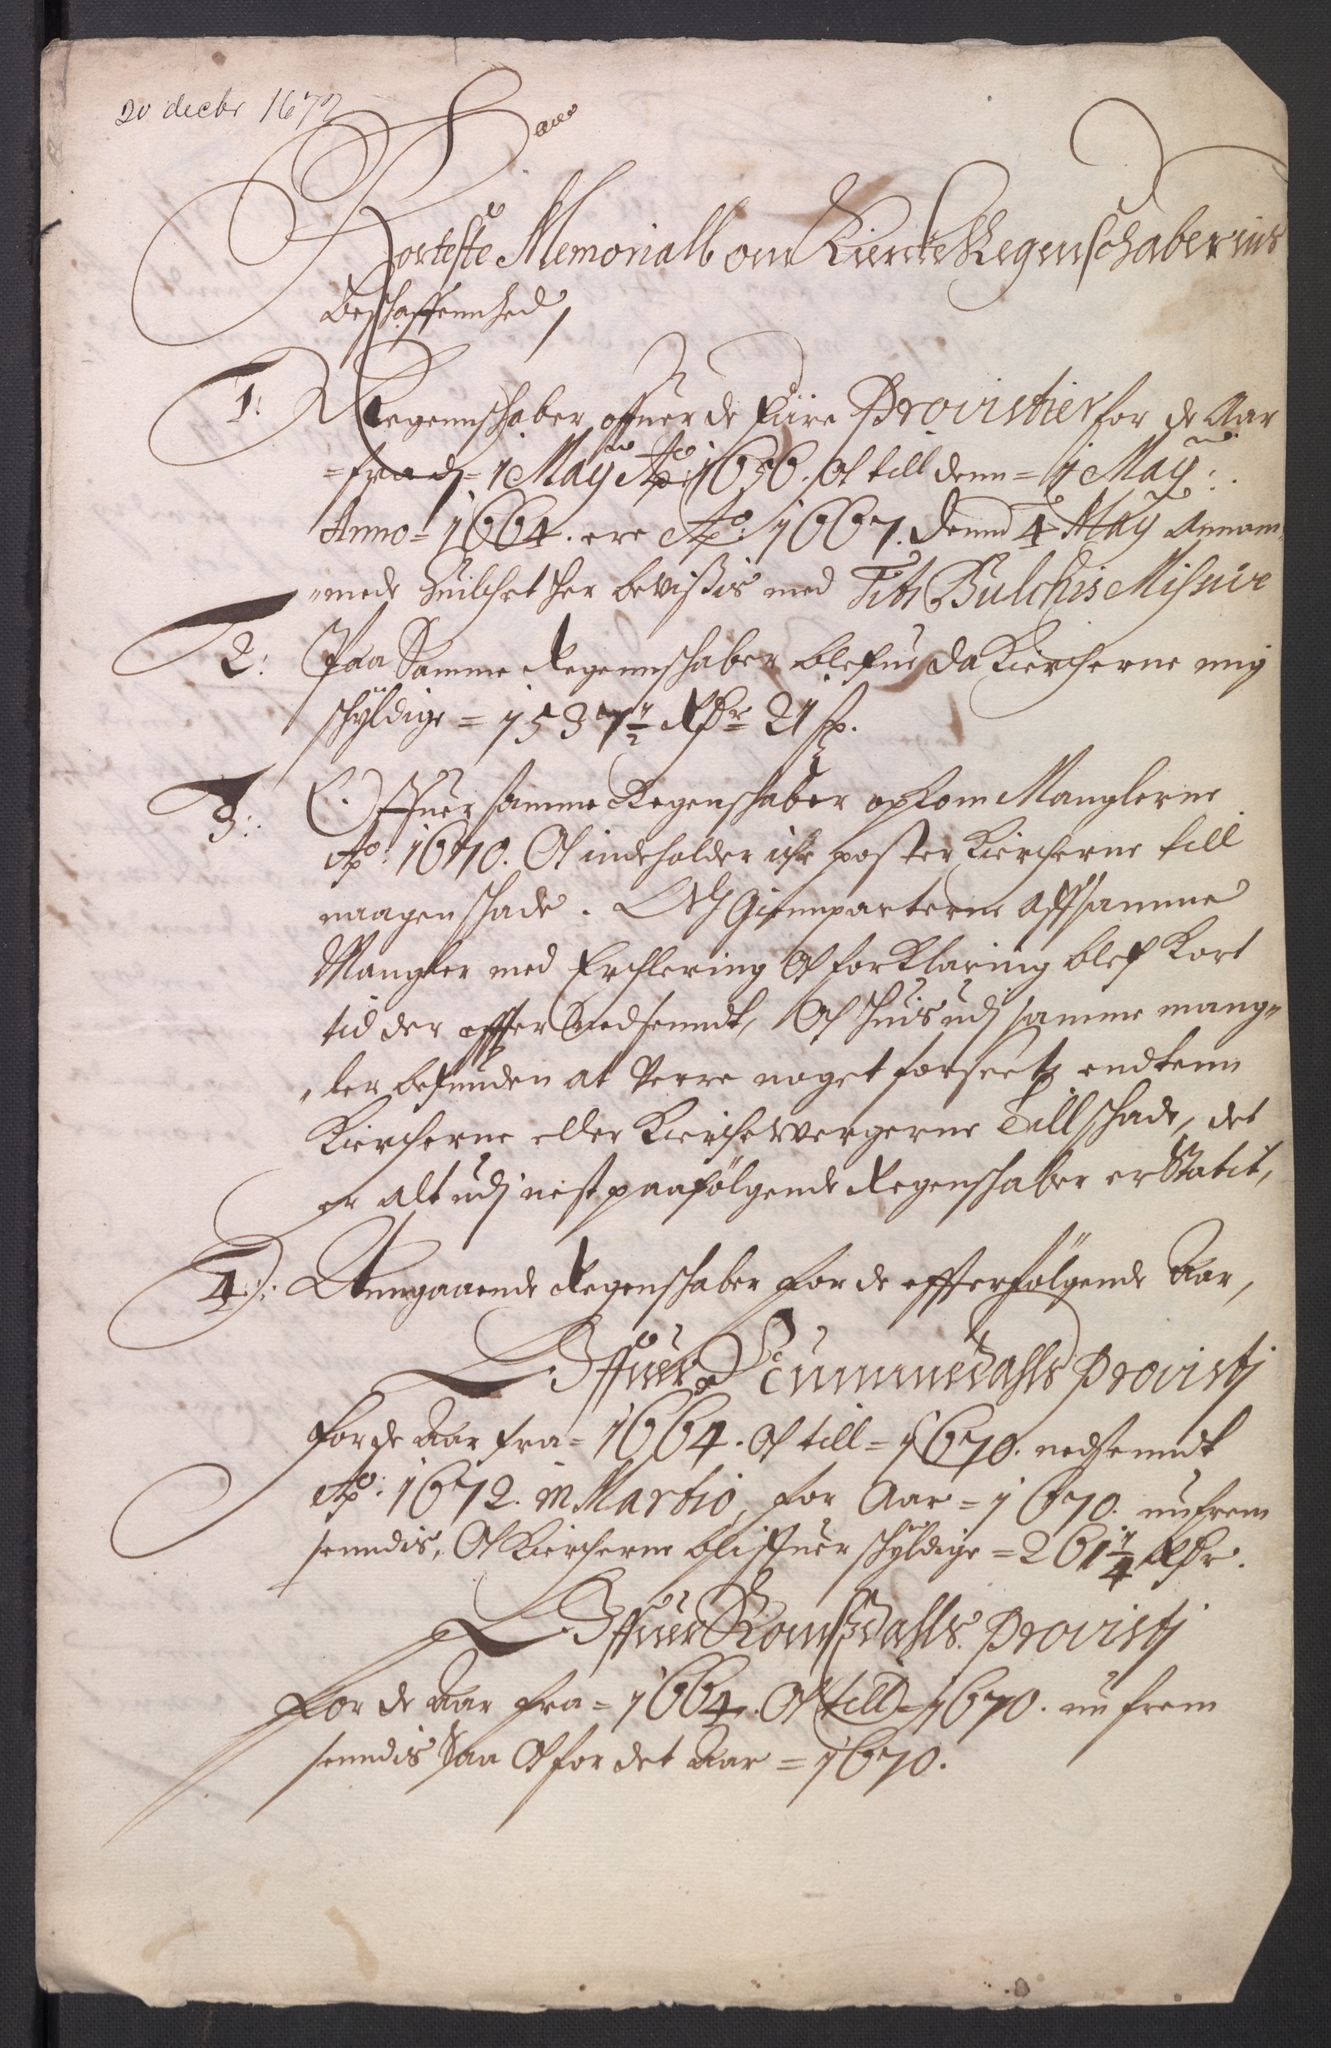 20 decbr 1672
Korteste Memoriall om Kiercke Regenschabernis
Beschaffennhed,
1: Regennschaber offuer de fiire Provistier for de Aar
=fra d= 1 May Ao: 1656. Och till denn = 1 May:
Anno= 1664. ere Ao: 1667. Denn 4 May Annam,,
,,mede Huilchet her bevißis med Tit Bulchis Missive
2: Paa Samme Regennschaber blefue da Kiercherne mig
schyldige = 1537½ Rdr 21 s.
3: Offuer samme Regenschaber opkom Manglerne
Ao: 1670. Och indeholder iche poster Kiercherne till
naagen schade. Och Gienparterne Aff samme
Mangler med Erchlering Och forklaring blef Kort
tid der effter Nedsenndt, Och huis udj samme mang=
,,ler befunden at Verre noget forseet, endtenn
Kiercherne eller Kirchewergerne Till schade, det
er alt udj nest paafølgende Regenschaber erstatit,
4: Anngaaende Regenschaber for de effterfølgende Aar,
Offuer Nummedahls Provistj
for de Aar fra= 1664. Och till = 1670. nedsenndt
Ao: 1672. in Martio, for Aar = 1670. nu frem
senndis, Och Kiercherne bliffuer schyldige = 261¼ Rdr.
Offuer Romsdahls Provistj
for de Aar fra= 1664. Och till = 1670. nu frem
senndis Saa Och for det Aar = 1670.